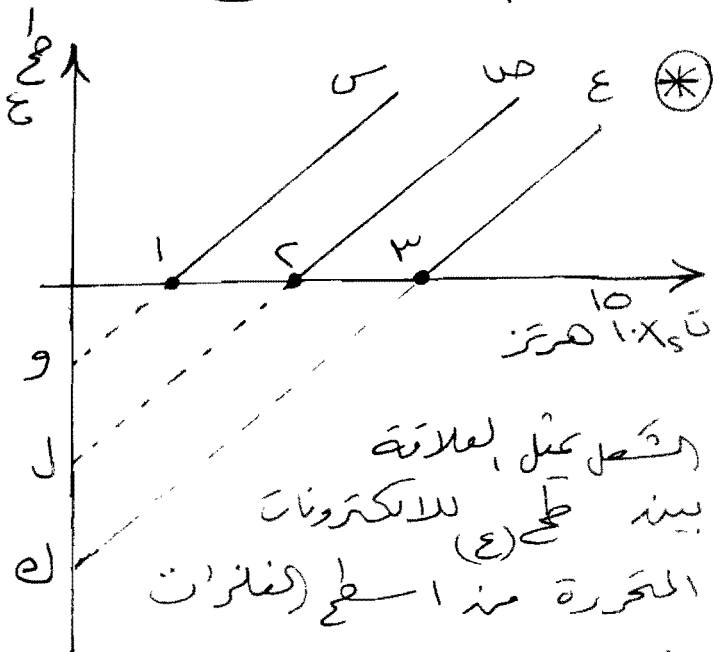 طح
ع
س ص ع
١ ٢ ٣
ت د × ١٠ ١٥ هرتز
و
ل
ك
الشكل يمثل العلاقة
بين طح (ع) للالكترونات
المتحررة من اسطح الفلزات